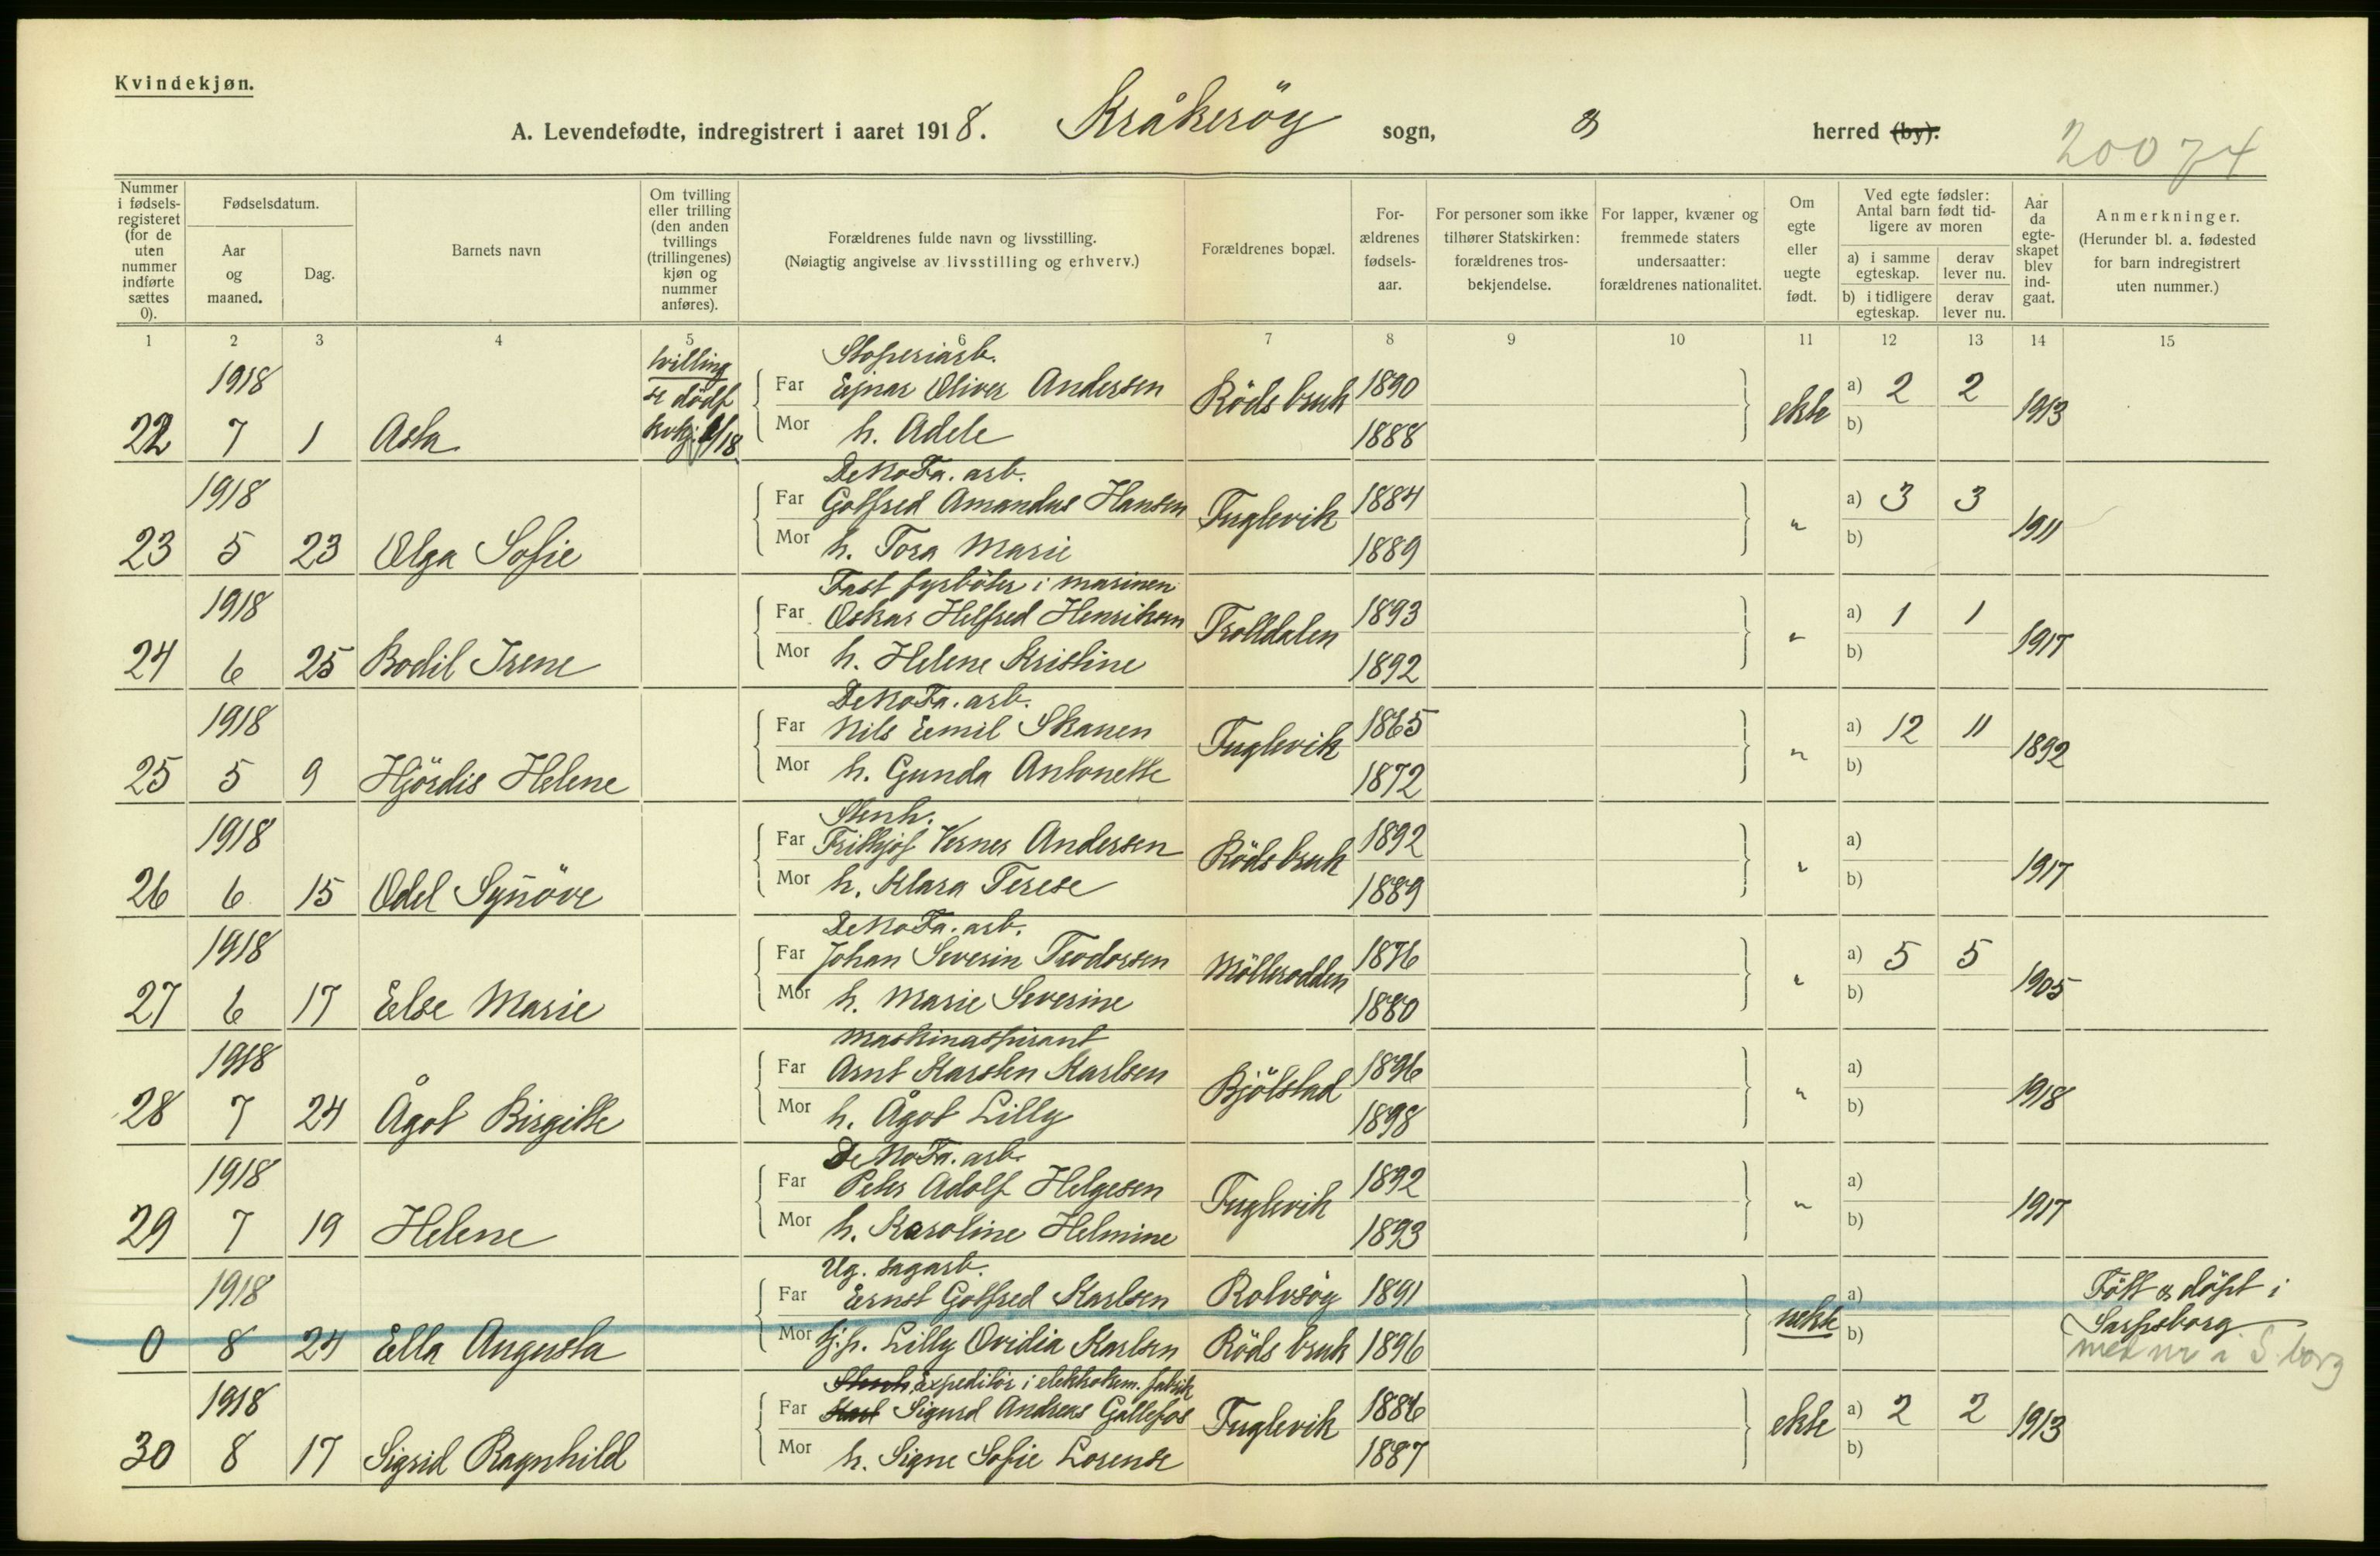 Kvindekjøn.
A. Levendefødte, indregistrert i aaret 1918. Kråkeröy sogn, herred (by).
20074
Nummer i fødsels-registeret (for de uten nummer indførte sættes 0).
Fødselsdatum.
Aar og maaned.
Dag.
Barnets navn
Om tvilling eller trilling (den anden tvillings (trillingenes) kjøn og nummer anføres).
Forældrenes fulde navn og livsstilling.
(Nøiagtig angivelse av livsstilling og erhverv.)
Forældrenes bopæl.
For-ældrenes fødsels-aar.
For personer som ikke tilhører Statskirken: forældrenes tros-bekjendelse.
For lapper, kvæner og fremmede staters undersaatter: forældrenes nationalitet.
Om egte eller uegte født.
Ved egte fødsler: Antal barn født tid-ligere av moren
a) i samme egteskap.
derav lever nu.
b) i tidligere egteskap.
derav lever nu.
Aar da egte-skapet blev ind-gaat.
Anmerkninger.
(Herunder bl. a. fødested for barn indregistrert uten nummer.)
1 2 3 4 5 6 7 8 9 10 11 12 13 14 15
tvilling
se dödf.
Stoperiarb.
1918 Far Ejnar Oliver Andersen Röds bruk 1890 ekte a) 2 2 1913
22 7 1 Asta Mor h. Adele 1888 b)
DeNoFa. arb.
1918 Far Golfred Amandus Hansen Fuglevik 1884 " a) 3 3 1911
23 5 23 Olga Sofie Mor h. Tora Marie 1889 b)
Fast fyrböter i marinen
1918 Far Oskar Helfred Henriksen Trolldalen 1893 " a) 1 1 1917
24 6 25 Bodil Irene Mor h. Helene Kristine 1892 b)
DeNoFa. arb.
1918 Far Nils Emil Skauen Fuglevik 1865 " a) 12 11 1892
25 5 9 Hjördis Helene Mor h. Gunda Antonette 1872 b)
Stenh.
1918 Far Frithjof Verner Andersen Röds bruk 1892 " a) 1917
26 6 15 Odel Synöve Mor h. Klara Terese 1889 b)
DeNoFa. arb.
1918 Far Johan Severin Teodorsen Möllerodden 1876 " a) 5 5 1905
27 6 17 Else Marie Mor h. Marie Severine 1880 b)
Maskinaspirant
1918 Far Arnt Karsten Karlsen Bjölstad 1896 " a) 1918
28 7 24 Ågot Birgitte Mor h. Ågot Lilly 1898 b)
DeNoFa. arb.
1918 Far Peter Adolf Helgesen Fuglevik 1892 " a) 1917
29 7 19 Helene Mor h. Karoline Helmine 1893 b)
Ug. sagarb.
1918 Far Ernst Golfred Karlsen Rolvsöy 1891 uekte a) Född & döpt i
0 8 24 Ella Augusta Mor Lilly Ovidia Karlsen Röds bruk 1896 b) Sarpsborg
med nr i S.borg
Stenh. Expeditör i elektrokem. fabrik
1918 Far Karl Sigurd Andreas Gellefos Fuglevik 1886 ekte a) 2 2 1913
30 8 17 Sigrid Ragnhild Mor h. Signe Sofie Lorense 1887 b)